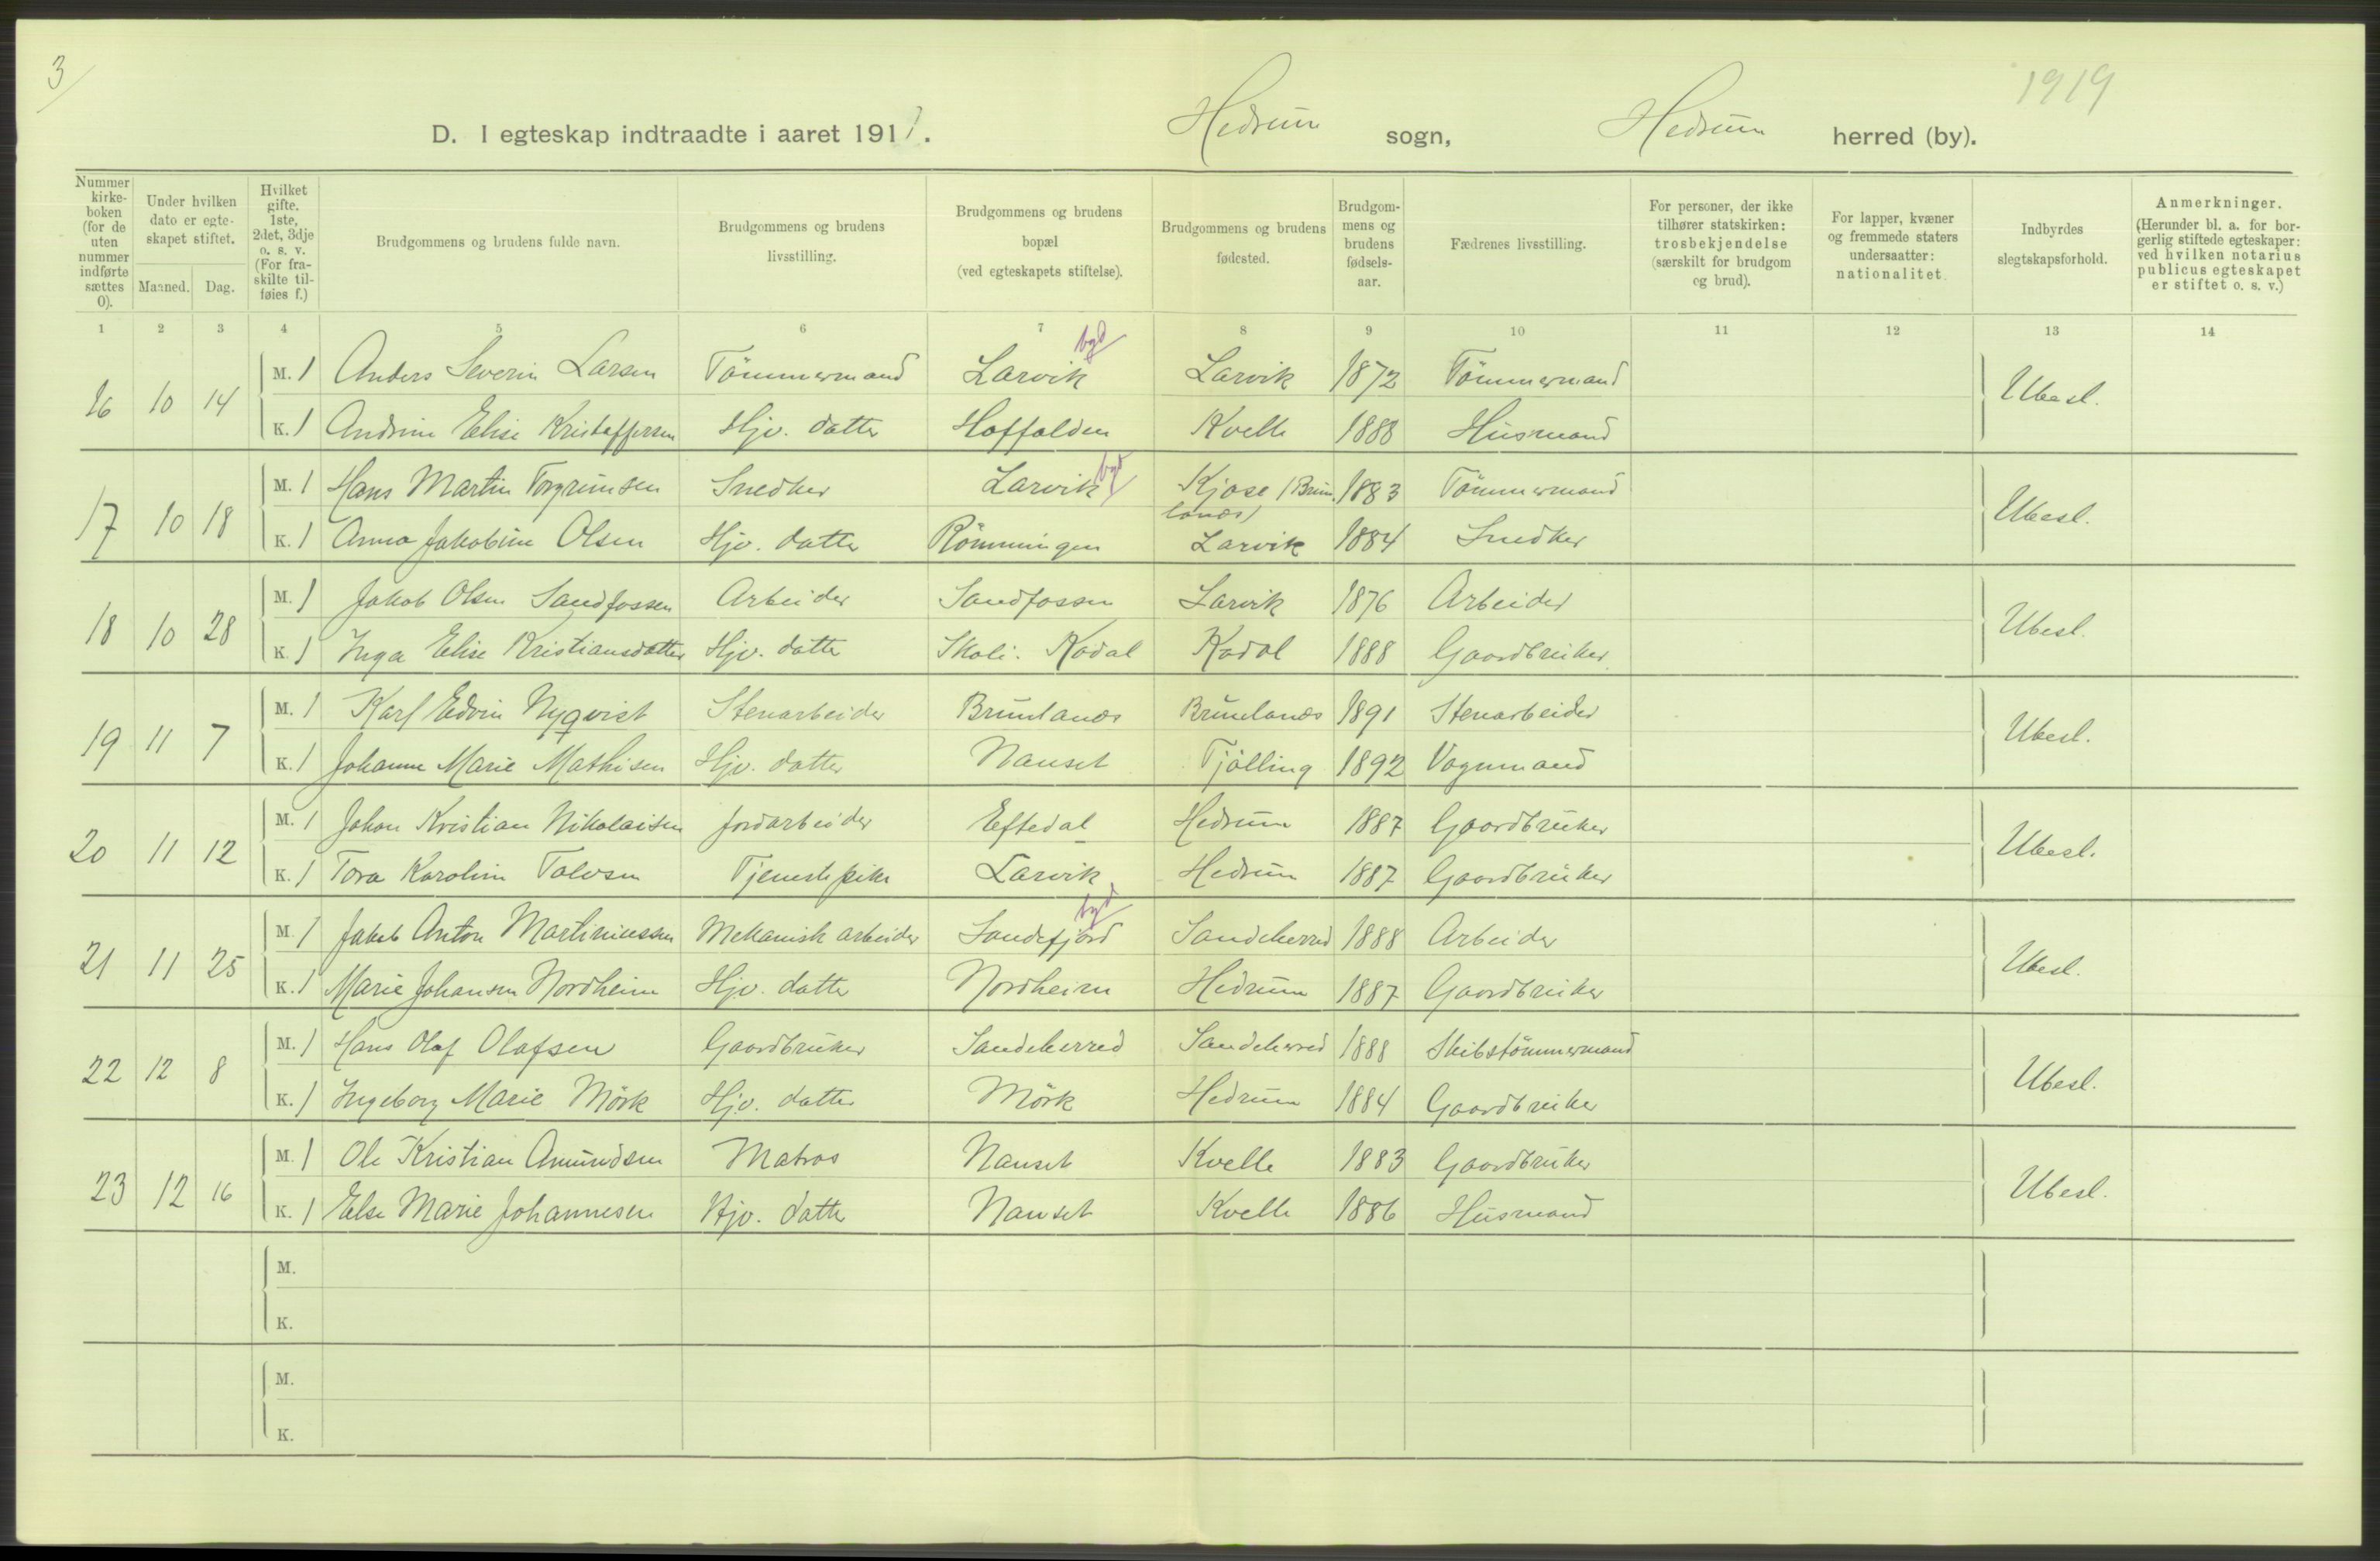 3/
1919
D. I egteskap indtraadte i aaret 1911. Hedrum sogn, Hedrum herred (by).
Nummer kirke-boken (for de uten nummer indførte sættes 0). | Under hvilken dato er egte-skapet stiftet. Maaned. Dag. | Hvilket gifte. 1ste, 2det, 3dje o. s. v. (For fra-skilte til-føies f.) | Brudgommens og brudens fulde navn. | Brudgommens og brudens livsstilling. | Brudgommens og brudens bopæl (ved egteskapets stiftelse). | Brudgommens og brudens fødested. | Brudgom-mens og brudens fødsels-aar. | Fædrenes livsstilling. | For personer, der ikke tilhører statskirken: trosbekjendelse (særskilt for brudgom og brud). | For lapper, kvæner og fremmede staters undersaatter: nationalitet. | Indbyrdes slegtskapsforhold. | Anmerkninger. (Herunder bl. a. for bor-gerlig stiftede egteskaper: ved hvilken notarius publicus egteskapet er stiftet o. s. v.)
1 2 3 4 5 6 7 8 9 10 11 12 13 14
16 10 14 M. 1 Anders Severin Larsen Tömmermand Larvik byd Larvik 1872 Tömmermand Ubesl.
K. 1 Andrine Elise Kristoffersen Hjv. datter Hoffalden Kvelle 1888 Husmand
17 10 18 M. 1 Hans Martin Torgrimsen Snedker Larvik byd Kjose (Brunlanes) 1883 Tömmermand Ubesl.
K. 1 Anna Jakobine Olsen Hjv. datter Römmingen Larvik 1884 Snedker
18 10 28 M. 1 Jakob Olsen Sandfossen Arbeider Sandfossen Larvik 1876 Arbeider Ubesl.
K. 1 Inga Elise Kristiansdatter Hjv. datter Skoli. Kodal Kodal 1888 Gaardbruker
19 11 7 M. 1 Karl Edvin Nyqvist Stenarbeider Brunlanes Brunlanes 1891 Stenarbeider Ubesl.
K. 1 Johanne Marie Mathisen Hjv. datter Nanset Tjølling 1892 Vognmand
20 11 12 M. 1 Johan Kristian Nikolaisen Jordarbeider Eftedal Hedrum 1887 Gaardbruker Ubesl.
K. 1 Tora Karoline Talvsen Tjenestepike Larvik Hedrum 1887 Gaardbruker
21 11 25 M. 1 Jakob Anton Martiniussen Mekanisk arbeider Sandefjord byd Sandeherred 1888 Arbeider Ubesl.
K. 1 Marie Johansen Nordheim Hjv. datter Nordheim Hedrum 1887 Gaardbruker
22 12 8 M. 1 Hans Olaf Olafsen Gaardbruker Sandeherred Sandeherred 1888 Skibstömmermand Ubesl.
K. 1 Ingeborg Marie Mörk Hjv. datter Mörk Hedrum 1884 Gaardbruker
23 12 16 M. 1 Ole Kristian Amundsen Matros Nanset Kvelle 1883 Gaardbruker Ubesl.
K. 1 Else Marie Johannesen Hjv. datter Nanset Kvelle 1886 Husmand
M.
K.
M.
K.